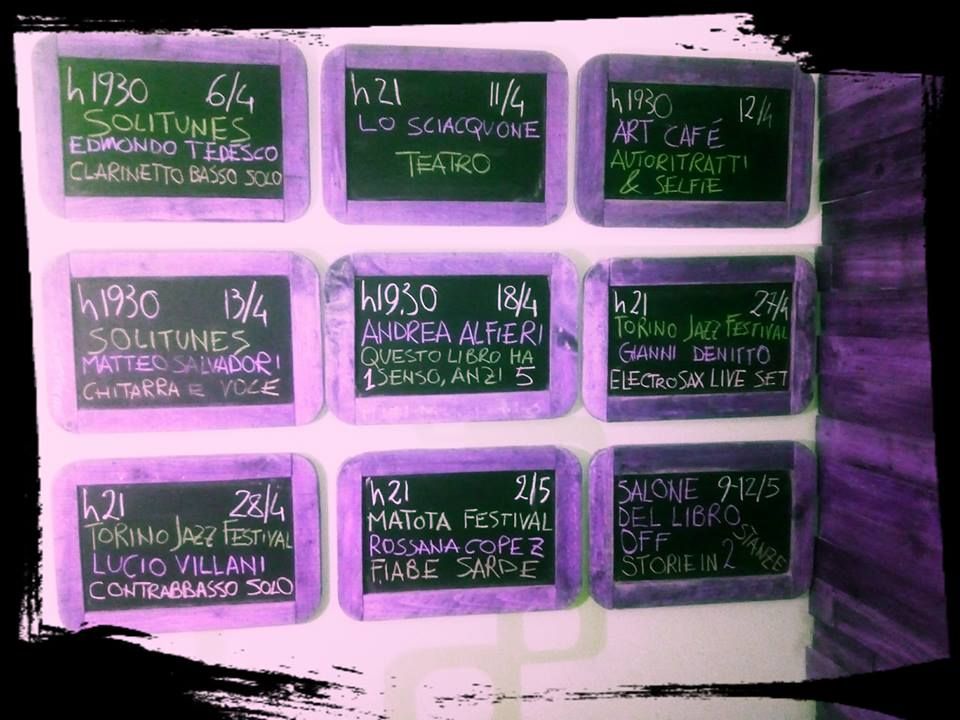 h1930 6/4
SOLITUNES
EDMONDO TEDESCO
CLARINETTO BASSO SOLO
h21 11/4
LO SCIACQUONE
TEATRO
h1930 12/4
ART CAFÉ
AUTORITRATTI
& SELFIE
h1930 13/4
SOLITUNES
MATTEO SALVADORI
CHITARRA E VOCE
h19,30 18/4
ANDREA ALFIERI
QUESTO LIBRO HA
1 SENSO, ANZI 5
h21 27/4
TORINO JAZZ FESTIVAL
GIANNI DENITTO
ELECTROSAX LIVE SET
h21 28/4
TORINO JAZZ FESTIVAL
LUCIO VILLANI
CONTRABBASSO SOLO
h21 2/5
MATOTA FESTIVAL
ROSSANA COPEZ
FIABE SARDE
SALONE 9-12/5
DEL LIBRO
OFF
STORIE IN 2 STANZE